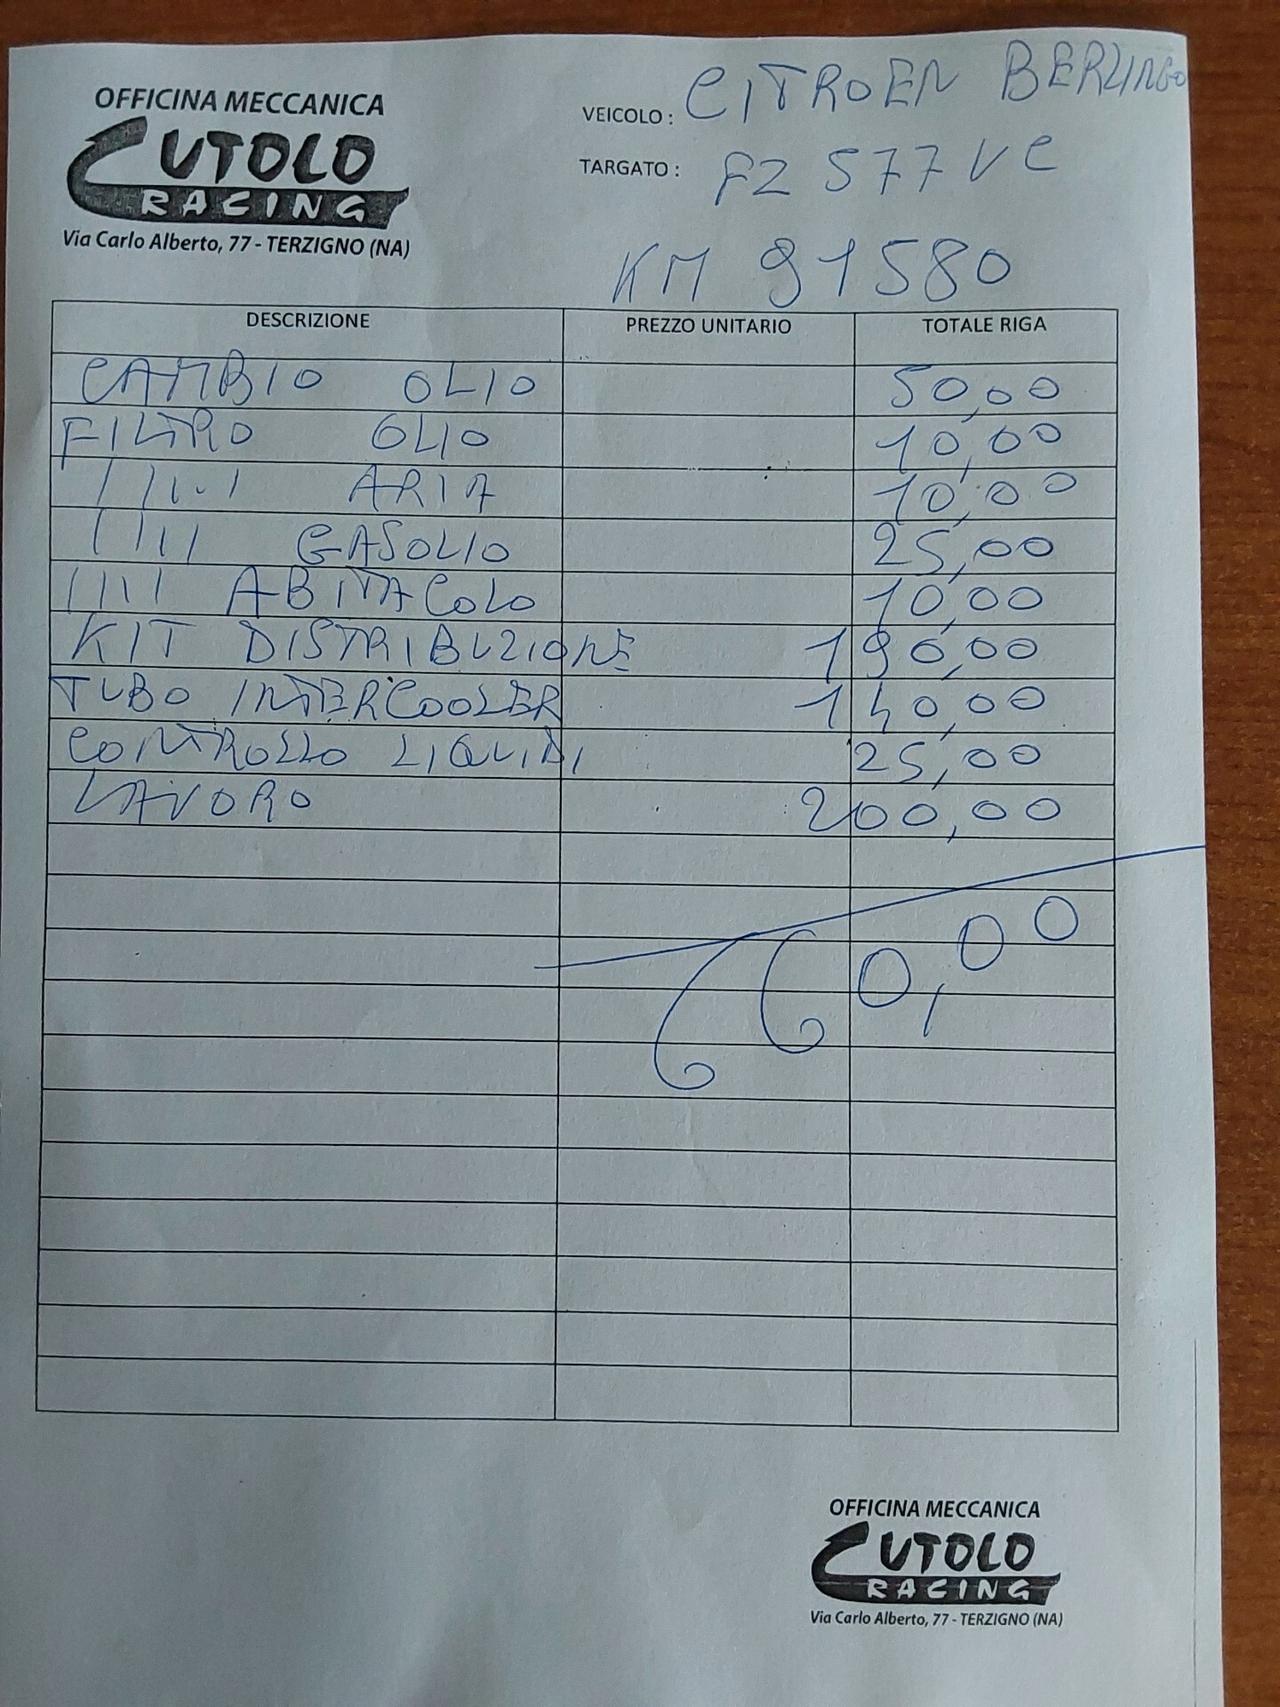 OFFICINA MECCANICA
CUTOLO
RACING
Via Carlo Alberto, 77 - TERZIGNO (NA)
VEICOLO : CITROEN BERLINGO
TARGATO : FZ 577VC
KM 91580
DESCRIZIONE PREZZO UNITARIO TOTALE RIGA
CAMBIO OLIO 50,00
FILTRO OLIO 10,00
//// ARIA 10,00
//// GASOLIO 25,00
//// ABITACOLO 10,00
KIT DISTRIBUZIONE 190,00
TUBO INTERCOOLER 140,00
CONTROLLO LIQUIDI 25,00
LAVORO 200,00
660,00
OFFICINA MECCANICA
CUTOLO
RACING
Via Carlo Alberto, 77 - TERZIGNO (NA)